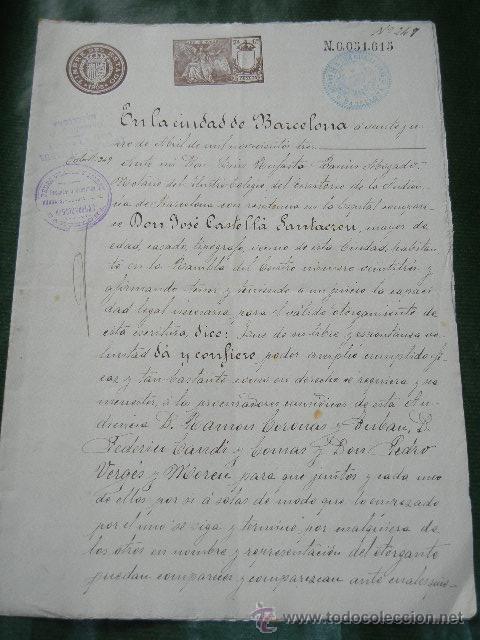 Nº 249
N.0.051.615
En la ciudad de Barcelona á veinte y cua-
tro de Abril de mil novecientos tres
Ante mi Don
Notario del Ilustre Colegio del territorio de la Audien-
cia de Barcelona con residencia en la Capital comparece
Don José Castellá Santacreu, mayor de
edad, casado, tipógrafo, vecino de esta Ciudad, habitan-
te en la Rambla del Centro número
y afirmando tener y teniendo a mi juicio la capaci-
dad legal necesaria para el válido otorgamiento de
esta escritura, dice: Que de su libre y espontánea vo-
luntad dá y confiere poder amplio cumplido efi-
caz y tan bastante como en derecho se requiera y sea
menester, á los procuradores causídicos de esta Au-
diencia D. Ramon Coronas y Buban, D.
Federico Candi y Comas y Don Pedro
Vergés y Mercé, para que juntos y cada uno
de ellos, por si á solas de modo que lo empezado
por el uno se siga y termine por cualquiera de
los otros en nombre y representación del otorgante
puedan comparecer y comparezcan ante cualesquie-
todocoleccion.net